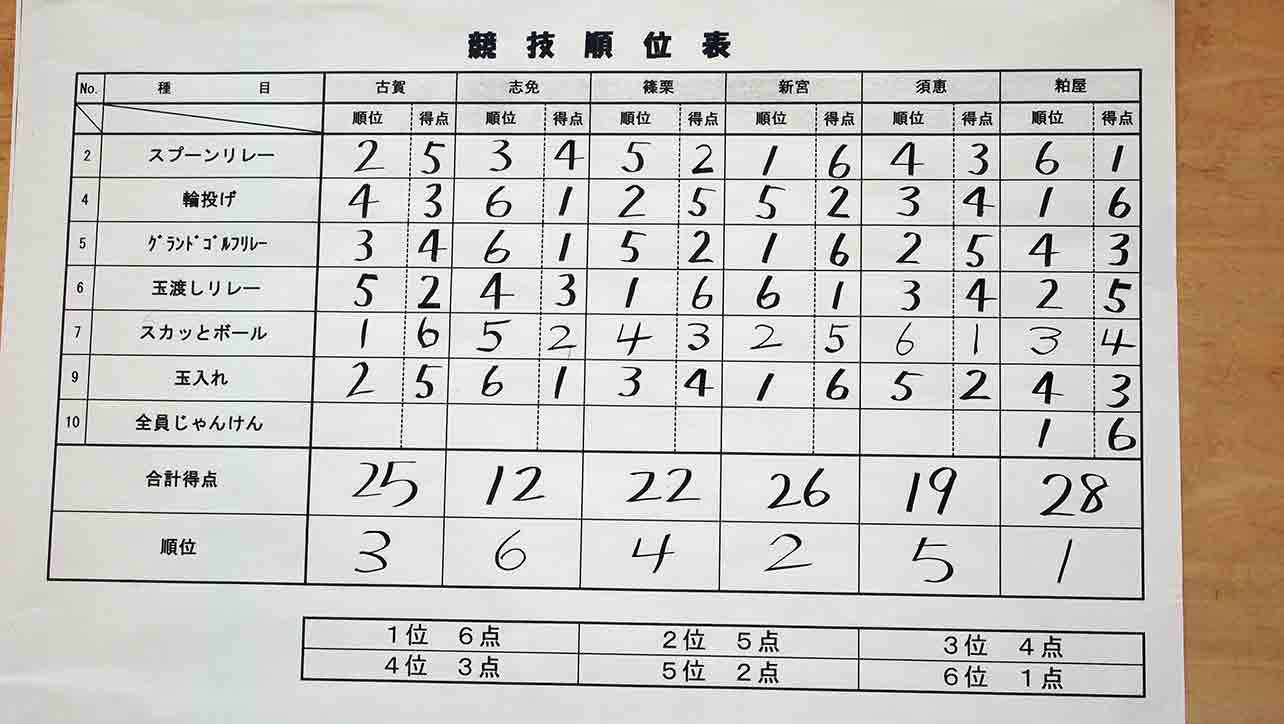 競技順位表
No. 種目 古賀 志免 篠栗 新宮 須恵 粕屋
順位 得点 順位 得点 順位 得点 順位 得点 順位 得点 順位 得点
2 スプーンリレー 2 5 3 4 5 2 1 6 4 3 6 1
4 輪投げ 4 3 6 1 2 5 5 2 3 4 1 6
5 ｸﾞﾗﾝﾄﾞｺﾞﾙﾌﾘﾚｰ 3 4 6 1 5 2 1 6 2 5 4 3
6 玉渡しリレー 5 2 4 3 1 6 6 1 3 4 2 5
7 スカッとボール 1 6 5 2 4 3 2 5 6 1 3 4
9 玉入れ 2 5 6 1 3 4 1 6 5 2 4 3
10 全員じゃんけん 1 6
合計得点 25 12 22 26 19 28
順位 3 6 4 2 5 1
1位 6点 2位 5点 3位 4点
4位 3点 5位 2点 6位 1点